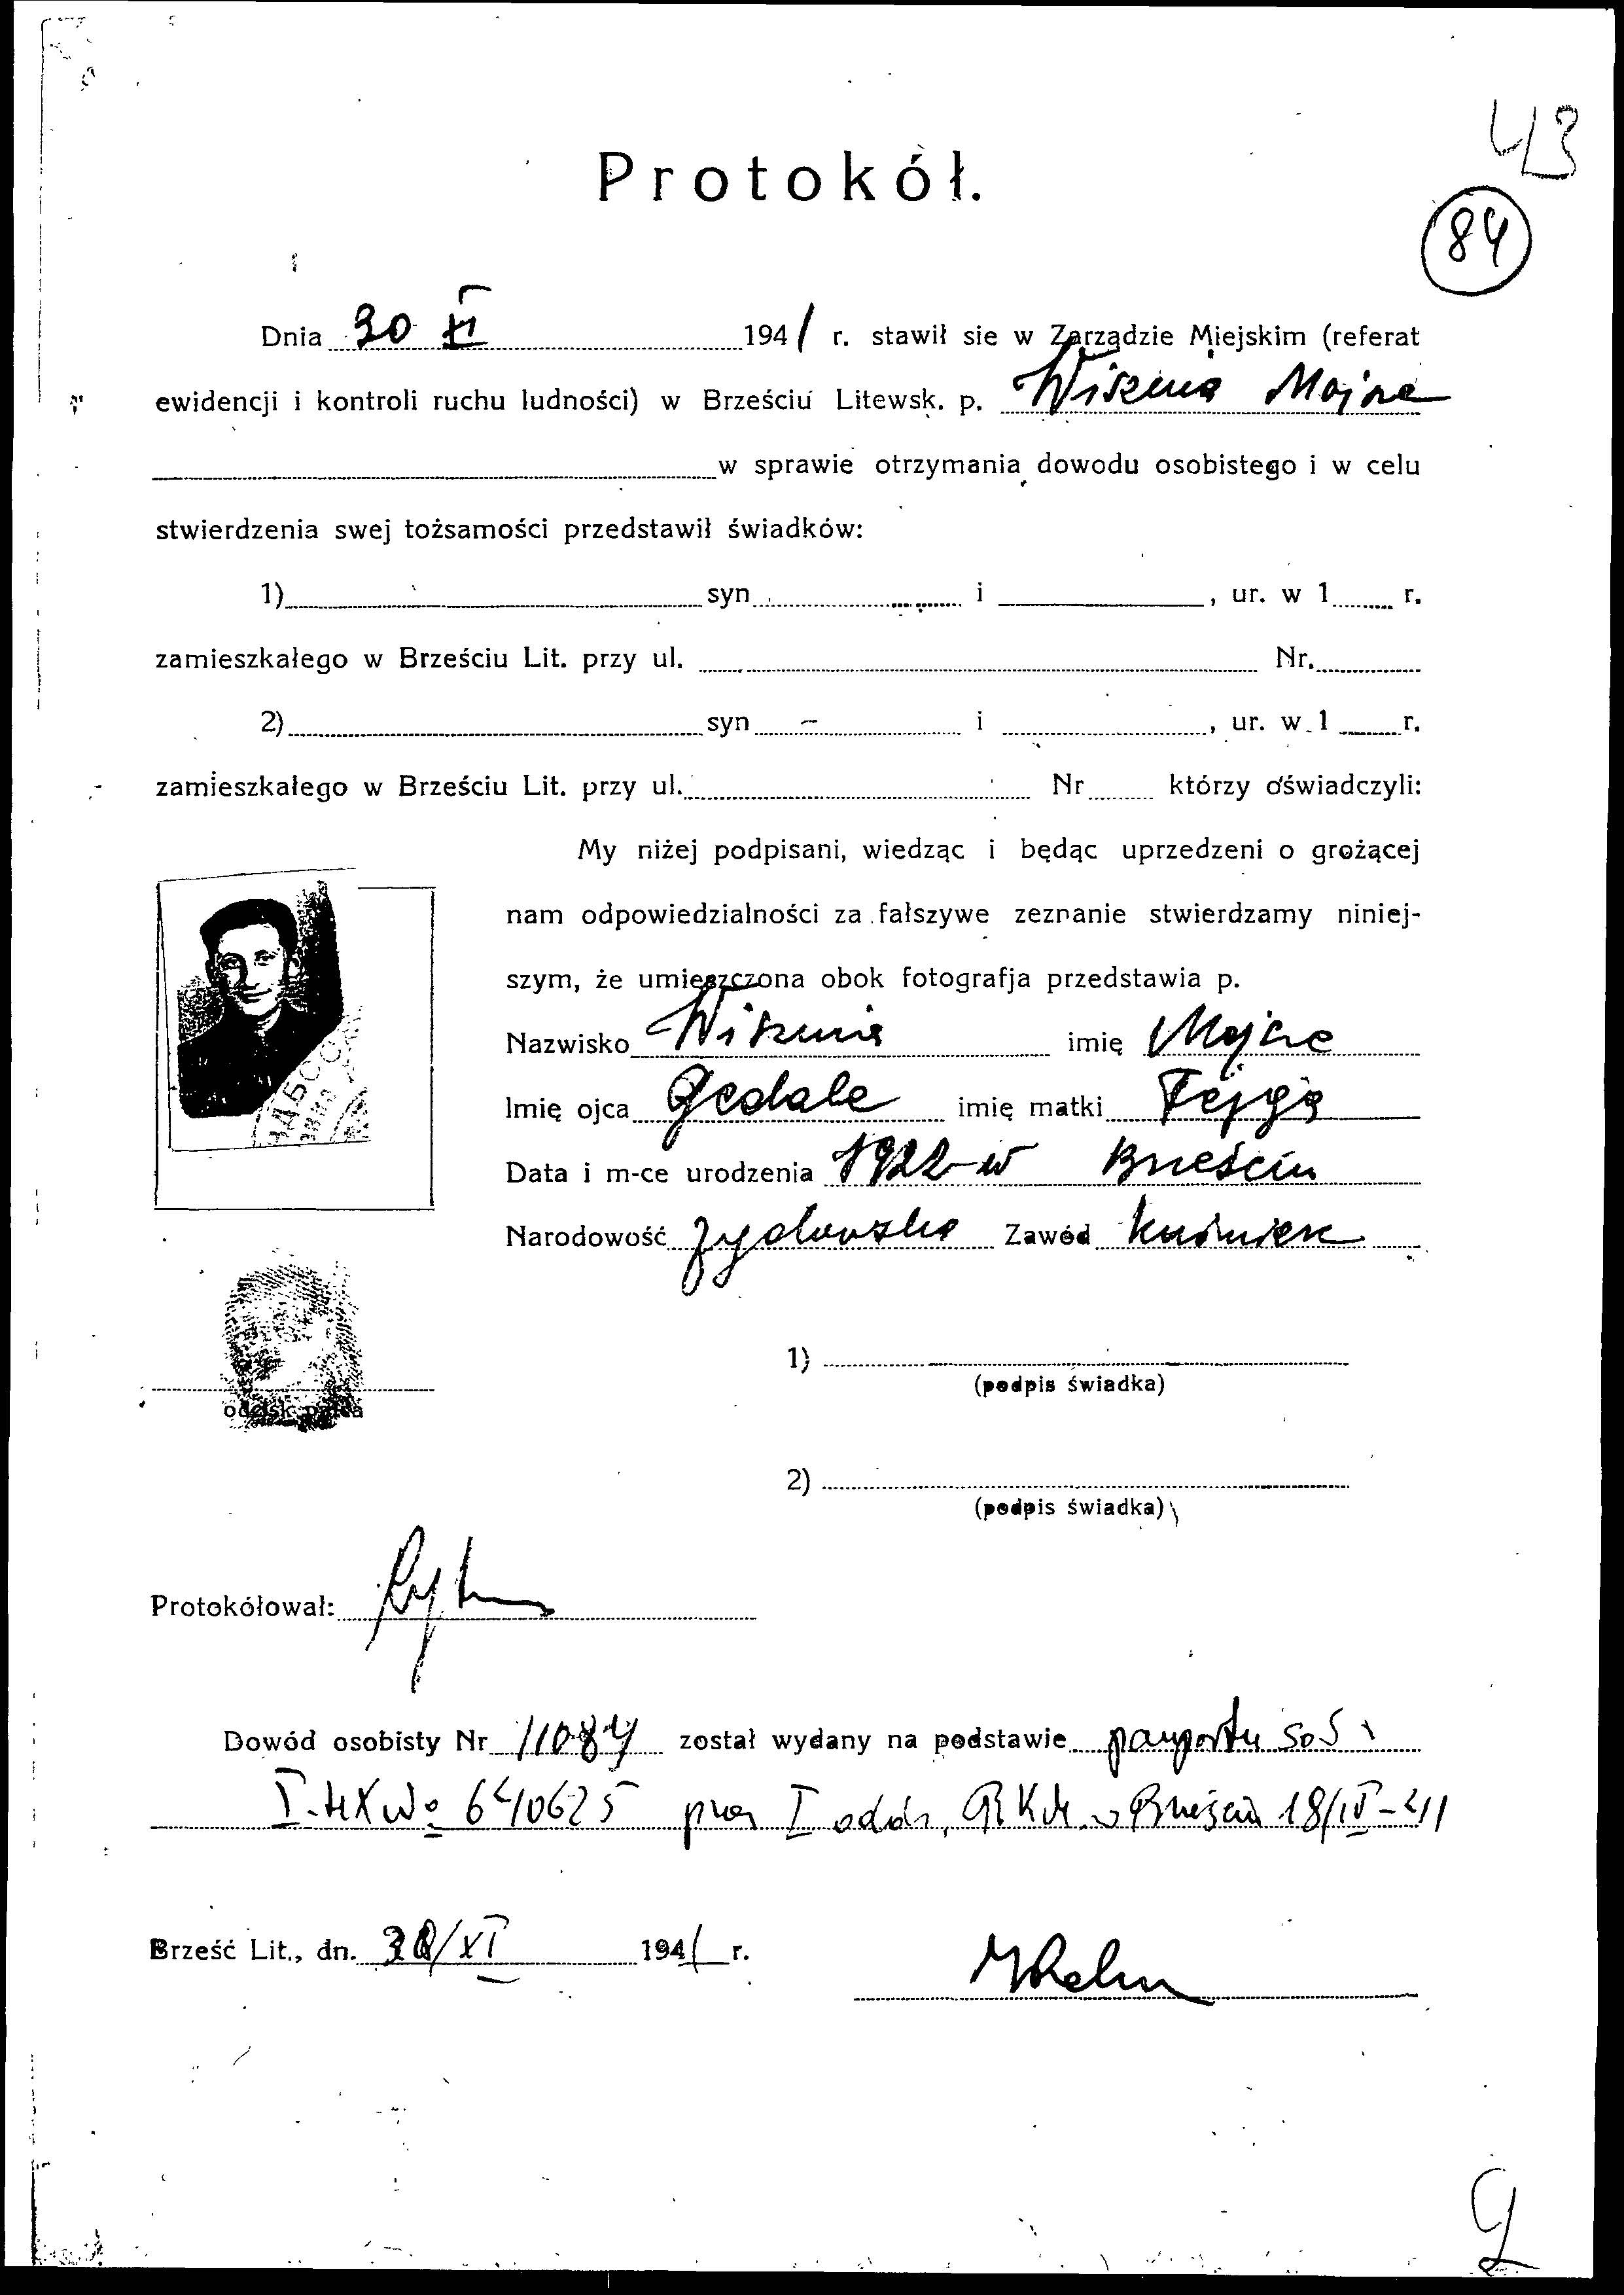 43
Protokół.
84
Dnia 30 XI 1941 r. stawił sie w Zarządzie Miejskim (referat
ewidencji i kontroli ruchu ludności) w Brześciu Litewsk. p. Wisznia Mojze
w sprawie otrzymania dowodu osobistego i w celu
stwierdzenia swej tożsamości przedstawił świadków:
1) syn i , ur. w 1 r.
zamieszkałego w Brześciu Lit. przy ul. Nr.
2) syn – i , ur. w 1 r.
zamieszkałego w Brześciu Lit. przy ul. Nr którzy oświadczyli:
My niżej podpisani, wiedząc i będąc uprzedzeni o grożącej
nam odpowiedzialności za fałszywe zeznanie stwierdzamy niniej-
szym, że umieszczona obok fotografja przedstawia p.
Nazwisko Wisznia imię Mojze
Imię ojca Gedale imię matki Fejga
Data i m-ce urodzenia 1922 w Brześciu
Narodowość żydowska Zawód kuśnierz
odcisk palca
1)
(podpis świadka)
2)
(podpis świadka)
Protokółował:
Dowód osobisty Nr 11084 został wydany na podstawie paszportu sos
640625 przez I oddz. w Brześciu 18/IV-41
Brześć Lit., dn. 30/XI 1941 r.